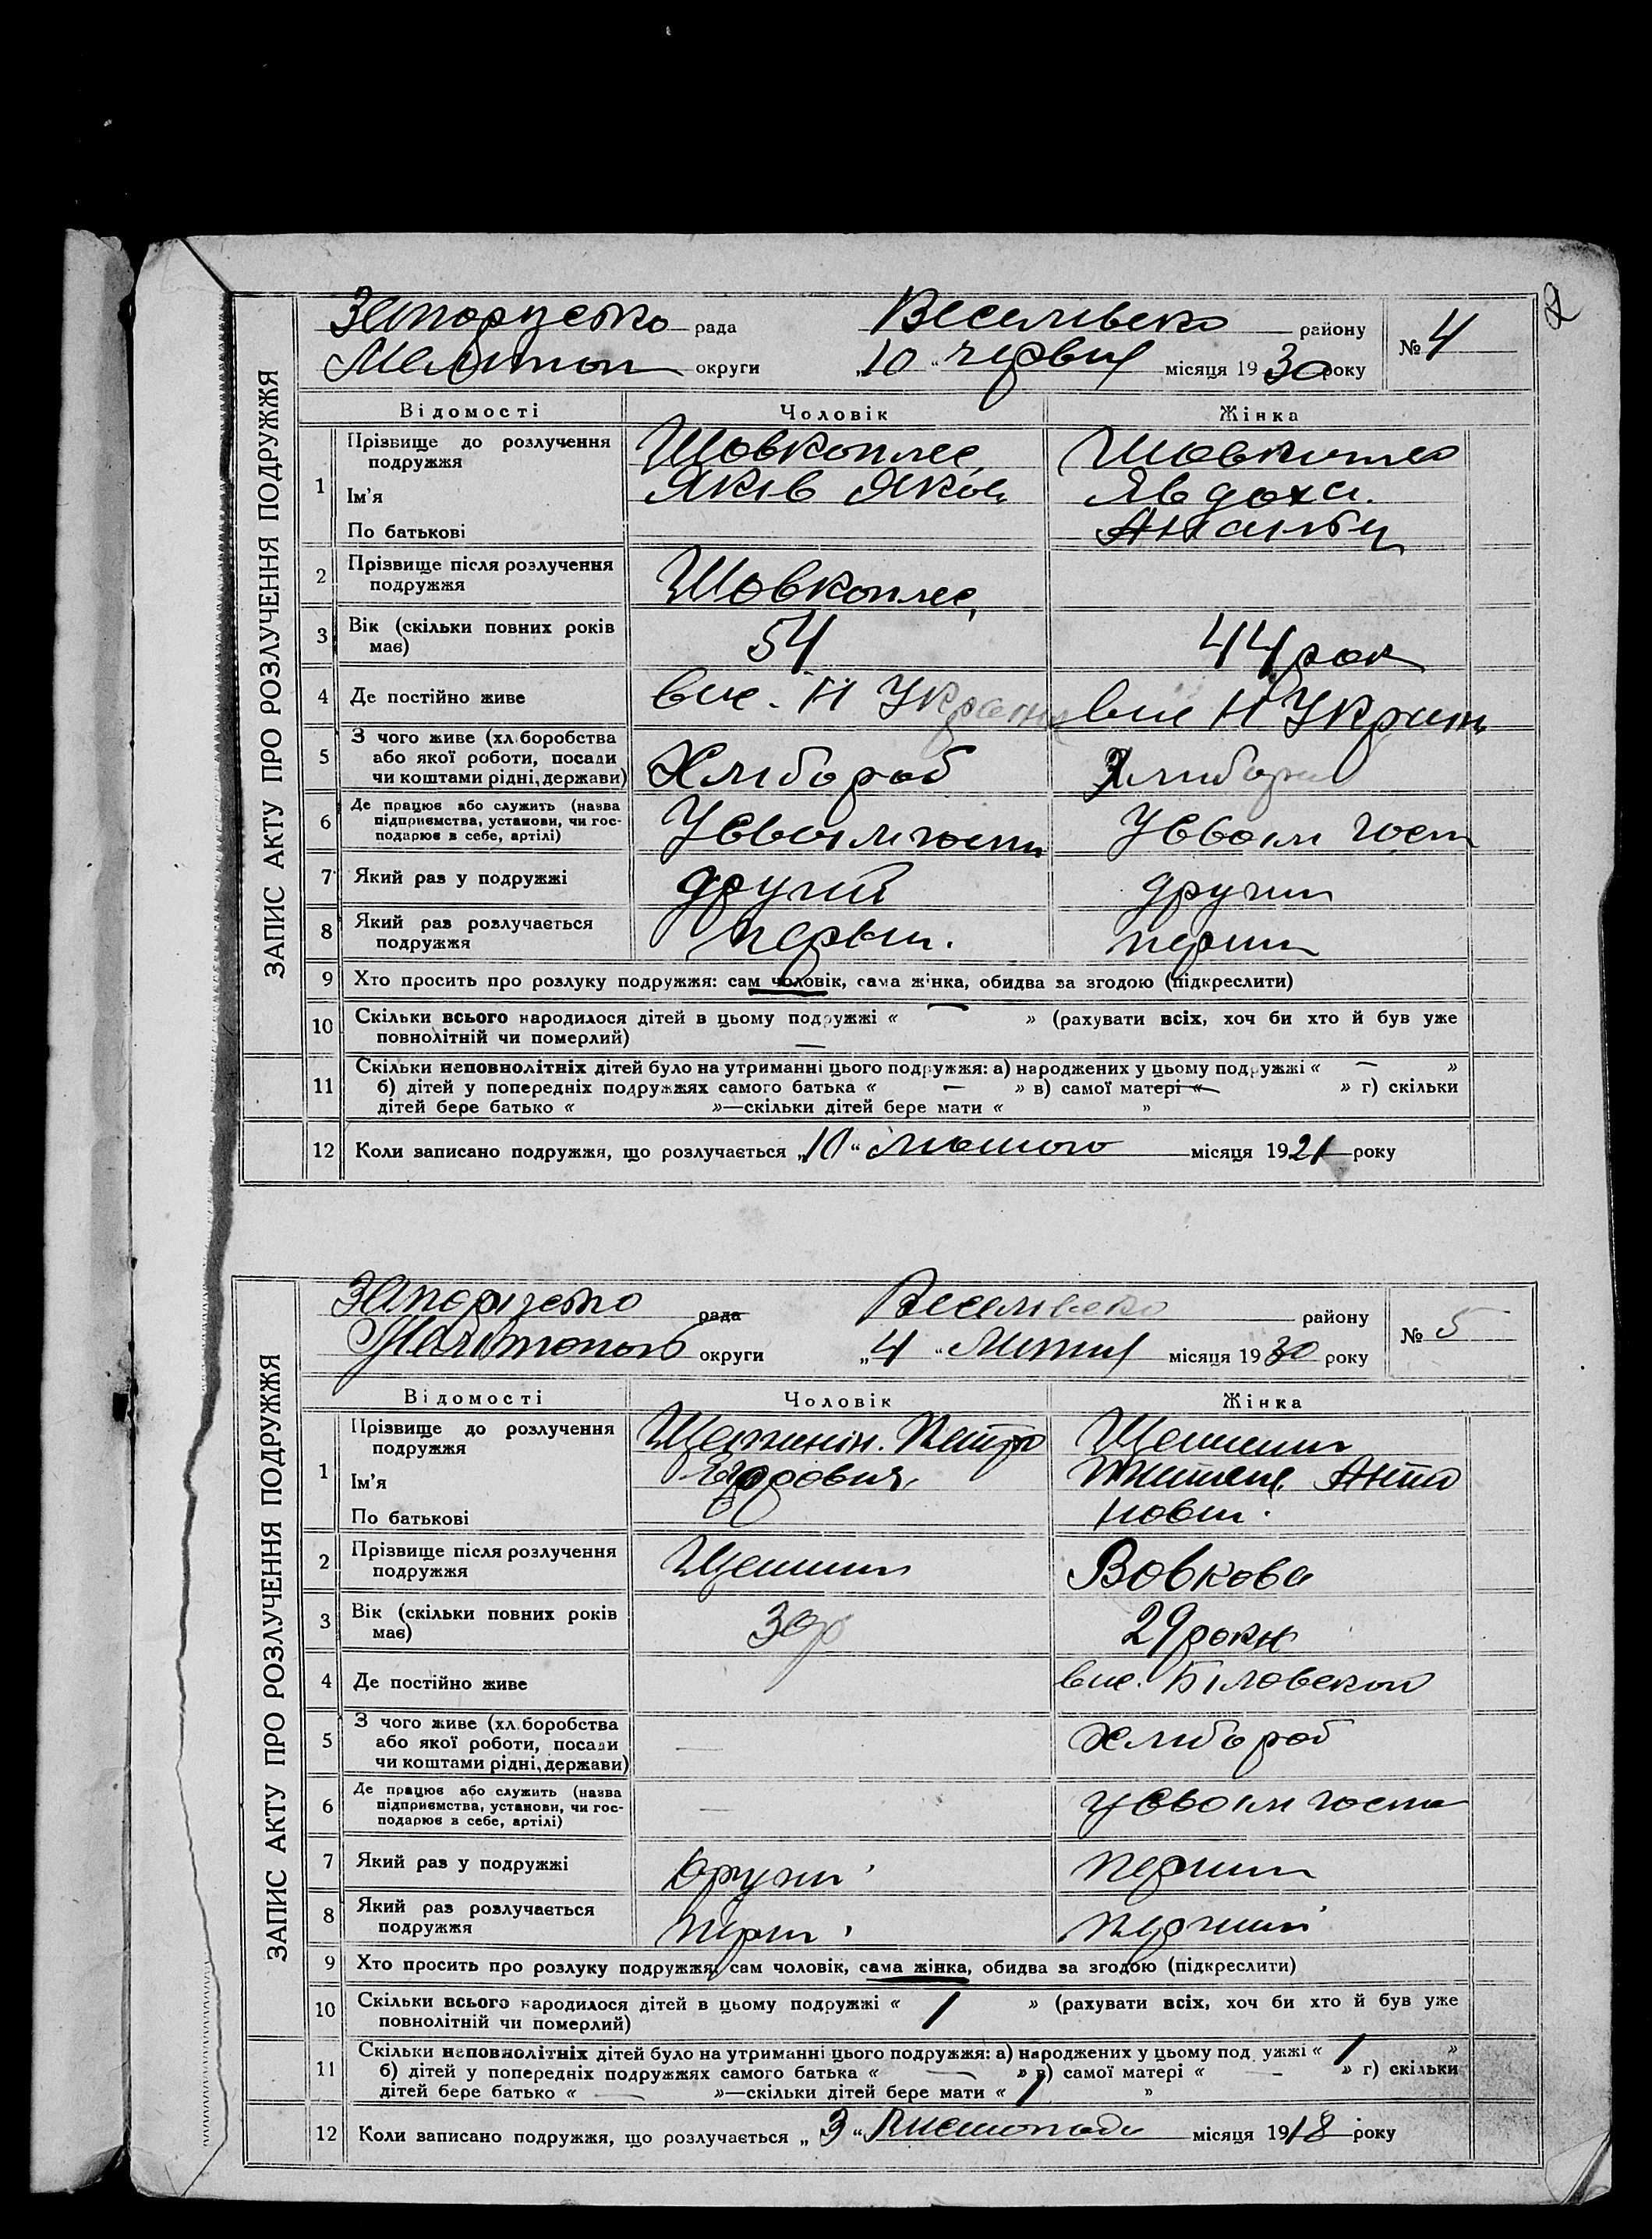 2
ЗАПИС АКТУ ПРО РОЗЛУЧЕННЯ ПОДРУЖЖЯ
Запорузько рада Веселівсько району № 4
Мелітоп округи „10“ червня місяця 1930 року
Відомості Чоловік Жінка
1 Прізвище до розлучення подружжя Шовкопляс Шовкопляс
Ім'я Яків Яков Явдоха
По батькові Ананьви
2 Прізвище після розлучення подружжя Шовкопляс
3 Вік (скільки повних років має) 54 44 рок
4 Де постійно живе вис. Н Україна вис Н Україн
5 З чого живе (хл.боробства або якої роботи, посади чи коштами рідні, держави) Хлибороб Хлибороб
6 Де працює або служить (назва підприємства, установи, чи господарює в себе, артілі) У своїм госпи У своїм госп
7 Який раз у подружжі другий други
8 Який раз розлучається подружжя первы. перши
9 Хто просить про розлуку подружжя: сам чоловік, сама жінка, обидва за згодою (підкреслити)
10 Скільки всього народилося дітей в цьому подружжі « — » (рахувати всіх, хоч би хто й був уже
повнолітній чи померлий) —
11 Скільки неповнолітніх дітей було на утриманні цього подружжя: а) народжених у цьому подружжі « — »
б) дітей у попередніх подружжях самого батька « — » в) самої матері « — » г) скільки
дітей бере батько « »—скільки дітей бере мати « »
12 Коли записано подружжя, що розлучається „10“ лютого місяця 1921 року
ЗАПИС АКТУ ПРО РОЗЛУЧЕННЯ ПОДРУЖЖЯ
Запорузько рада Веселівсько району № 5
Мелітопольо округи „4“ Липня місяця 1930 року
Відомості Чоловік Жінка
1 Прізвище до розлучення подружжя Петро
Ім'я Анто
По батькові нови.
2 Прізвище після розлучення подружжя Вовкова
3 Вік (скільки повних років має) 30 р 29 роки
4 Де постійно живе вис. Біловской
5 З чого живе (хл.боробства або якої роботи, посади чи коштами рідні, держави) — Хлибороб
6 Де працює або служить (назва підприємства, установи, чи господарює в себе, артілі) — у своїм госпо
7 Який раз у подружжі други перши
8 Який раз розлучається подружжя перши перший
9 Хто просить про розлуку подружжя: сам чоловік, сама жінка, обидва за згодою (підкреслити)
10 Скільки всього народилося дітей в цьому подружжі « 1 » (рахувати всіх, хоч би хто й був уже
повнолітній чи померлий)
11 Скільки неповнолітніх дітей було на утриманні цього подружжя: а) народжених у цьому подружжі « 1 »
б) дітей у попередніх подружжях самого батька « — » в) самої матері « - » г) скільки
дітей бере батько « — »—скільки дітей бере мати « 1 »
12 Коли записано подружжя, що розлучається „3“ Листопада місяця 1918 року